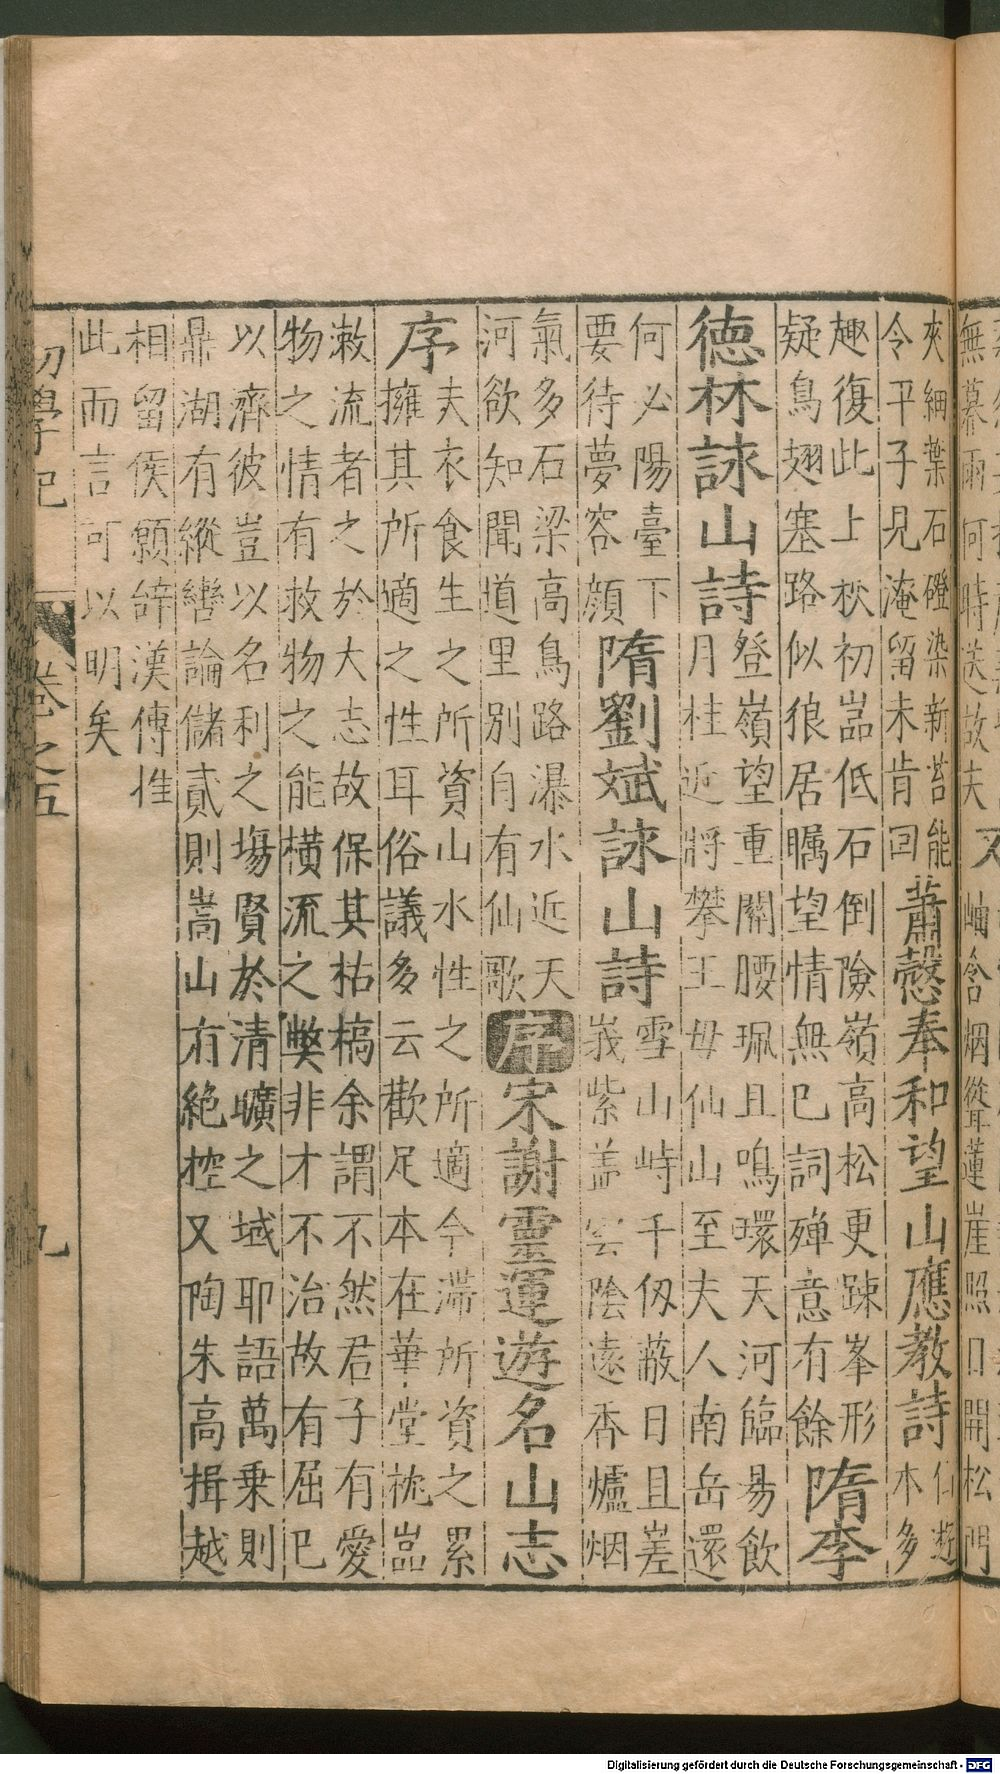 無暮雨何時送故夫
又
岫含烟聳蓮崖照日開松門
夾細葉石磴染新苔能
令平子見淹留未肯回
蕭愨奉和望山應教詩
仁遊
木多
趣復此上秋初嵓低石倒險嶺高松更踈峯形
疑鳥翅塞路似狼居矚望情無已詞殫意有餘
隋李
德林詠山詩
登嶺望重關腰珮且鳴環天河臨易飲
月桂近將攀王母仙山至夫人南岳還
何必陽臺下
要待夢容顔
隋劉斌詠山詩
雪山峙千仭蔽日且嵳
峩紫盖雲陰遠香爐烟
氣多石梁高鳥路瀑水近天
河欲知聞道里別自有仙歌
序
宋謝靈運遊名山志
序
夫衣食生之所資山水性之所適今滯所資之累
擁其所適之性耳俗議多云歡足本在華堂枕嵓
漱流者之於大志故保其枯槁余謂不然君子有愛
物之情有救物之能橫流之弊非才不治故有屈已
以濟彼豈以名利之塲賢於清曠之域耶語萬乗則
鼎湖有縱轡論儲貳則嵩山有絶控又陶朱高揖越
相留侯願辭漢傅推
此而言可以明矣
初學記
卷之五
九
Digitalisierung gefördert durch die Deutsche Forschungsgemeinschaft - DFG